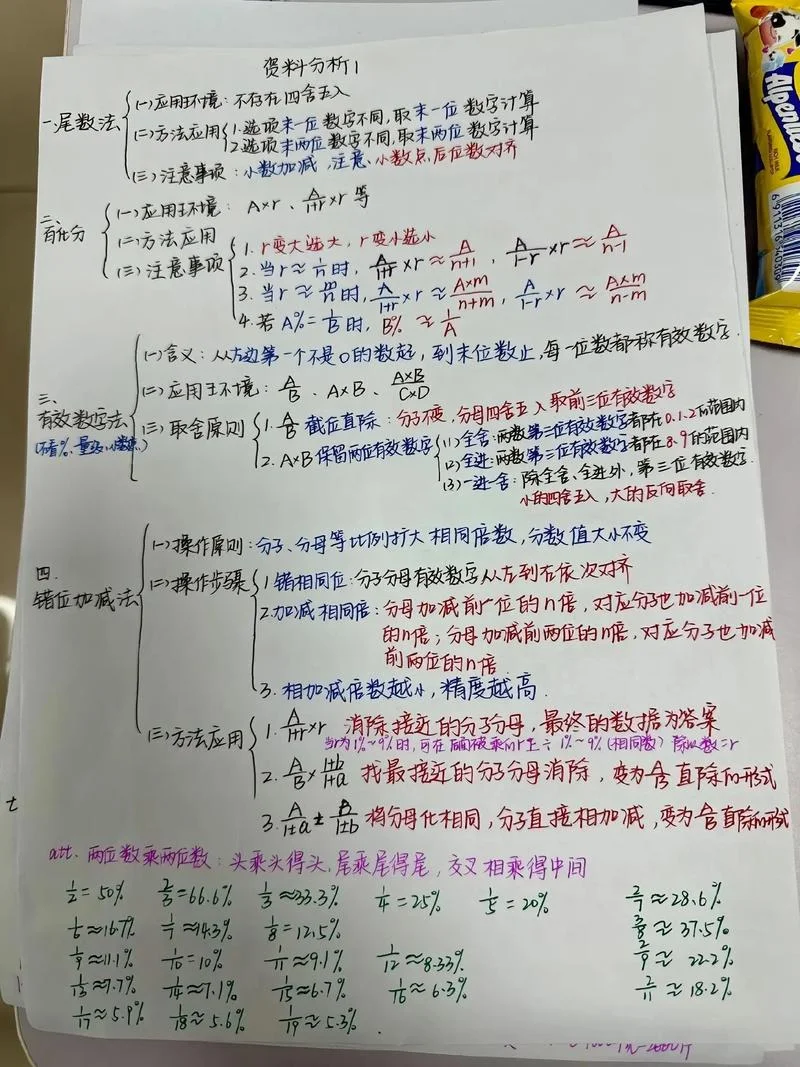 资料分析1
一.尾数法
(一)应用环境：不存在四舍五入
(二)方法应用
1.选项末一位数字不同,取末一位数字计算
2.选项末两位数字不同,取末两位数字计算
(三)注意事项：小数加减,注意、小数点后位数对齐
二、百化分
(一)应用环境：A×r、A/1+r×r等
(二)方法应用
(三)注意事项
1. r变大选大, r变小选小
2. 当r≈1/n时, A/1+r×r≈A/n+1, A/1-r×r≈A/n-1
3. 当r≈m/n时, A/1+r×r≈A×m/n+m, A/1-r×r≈A×m/n-m
4.若A%=1/B时, B%≈1/A
三、有效数字法
(不看%、量级、小数点)
(一)含义：从左边第一个不是0的数起,到末位数止,每一位数都称有效数字.
(二)应用环境：A/B、A×B、A×B/C×D
(三)取舍原则
1.A/B截位直除：分子不变,分母四舍五入取前三位有效数字
2.A×B保留两位有效数字
(1)全舍：两数第三位有效数字都在0.1.2的范围内
(2)全进：两数第三位有效数字都在8.9的范围内
(3)一进一舍：除全舍、全进外,第三位有效数字
小的四舍五入,大的反向取舍.
四.错位加减法
(一)操作原则：分子、分母等比例扩大相同倍数,分数值大小不变
(二)操作步骤
1.错相同位：分子分母有效数字从左到右依次对齐
2.加减相同倍：分母加减前一位的n倍,对应分子也加减前一位
的n倍；分母加减前两位的n倍,对应分子也加减
前两位的n倍
3.相加减倍数越小,精度越高.
(三)方法应用
1.A/1+r×r 消除接近的分子分母,最终的数据为答案
2.A/B×1+b/1+a 找最接近的分子分母消除,变为A/B直除的形式
3.A/1±a±B/1±b 将分母化相同,分子直接相加减,变为A/B直除的形式
att.两位数乘两位数：头乘头得头,尾乘尾得尾,交叉相乘得中间
1/2=50% 2/3=66.6% 1/3≈33.3% 1/4=25% 1/5=20% 2/7≈28.6%
1/6≈16.7% 1/7≈14.3% 1/8=12.5% 3/8≈37.5%
1/9≈11.1% 1/10=10% 1/11≈9.1% 1/12≈8.33% 2/9≈22.2%
1/13≈7.7% 1/14≈7.1% 1/15≈6.7% 1/16≈6.3% 2/11≈18.2%
1/17≈5.9% 1/18≈5.6% 1/19≈5.3%
t
Alpenliebe